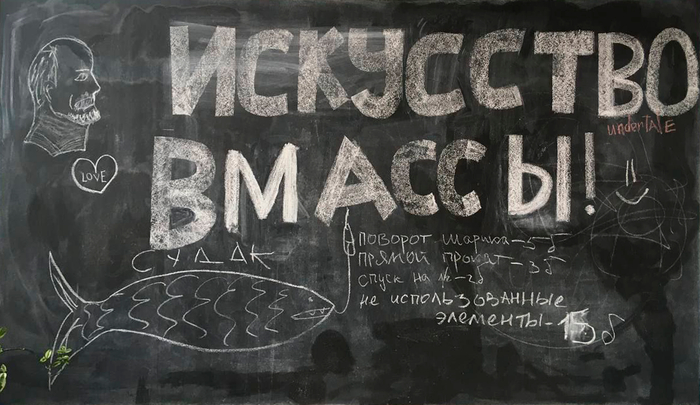 ИСКУССТВО
undertALE
В МАССЫ!
LOVE
СУДАК
поворот шарика-5б
прямой прокат-3б
спуск на №-2б
не использованные
элементы-15б